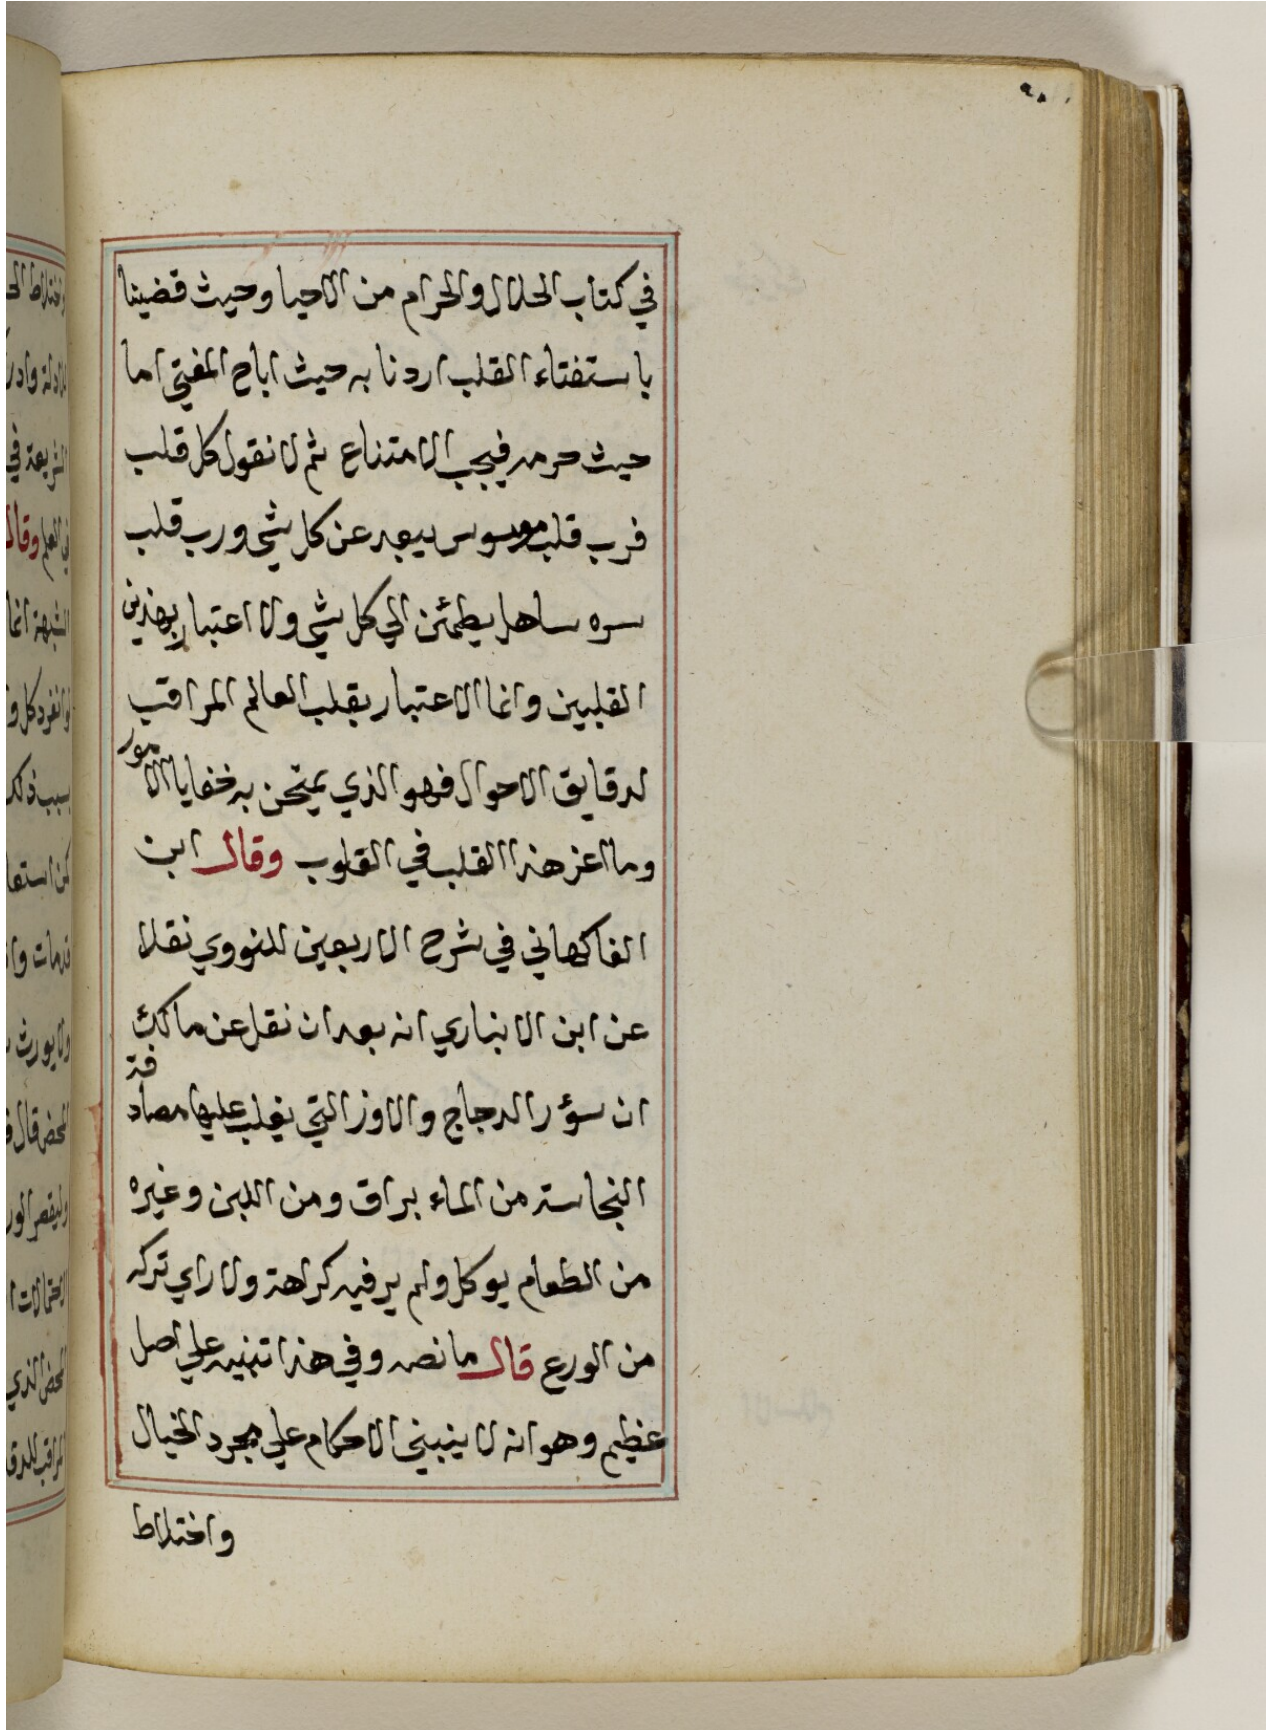 في كتاب الحلال والحرام من الاحيا وحيث قضينا
باستفتاء القلب اردنا به حيث اباح المفتي اما
حيث حرمه فيجب الامتناع ثم لا نقول كل قلب
فرب قلب موسوس يبعد عن كل شي ورب قلب
سره ساهل يطمئن الي كل شي ولا اعتبار بهذين
القلبين وانما الاعتبار بقلب العالم المراقب
لدقايق الاحوال فهو الذي يمتحن به خفايا الامور
وما اعز هذا القلب في القلوب وقال ابن
الفاكهاني في شرح الاربعين للنووي نقلا
عن ابن الانباري انه بعد ان نقل عن مالك
ان سؤر الدجاج والاوز التي يغلب عليها مصادفة
النجاسة من الماء يراق ومن اللبن وغيره
من الطعام يوكل ولم ير فيه كراهة ولا راي تركه
من الورع قال مانصه وفي هذا تنبيه علي اصل
عظيم وهو انه لا ينبني الاحكام علي مجرد الخيال
واختلاط